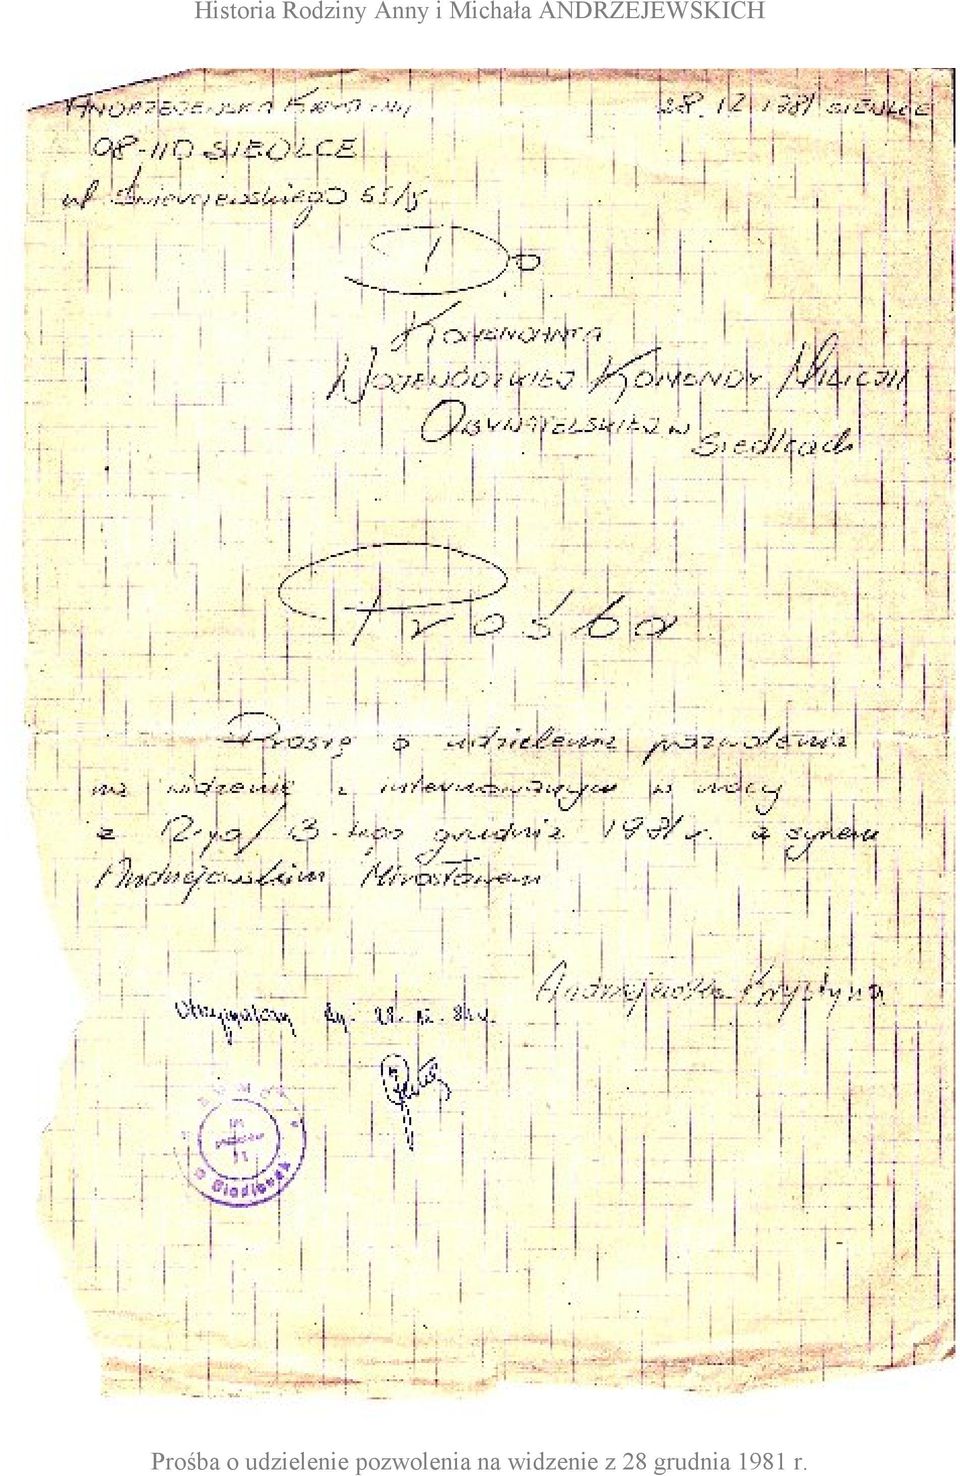 Historia Rodziny Anny i Michała ANDRZEJEWSKICH
ANDRZEJEWSKA 28.12.1981 SIEDLCE
08-110 SIEDLCE
ul. 55/5
Do
KOMENDANTA
WOJEWÓDZKIEJ KOMENDY MILICJI
OBYWATELSKIEJ W Siedlcach
Prośba
Proszę o udzielenie pozwolenia
na widzenie z internowanym w nocy
z 12-go/13-tego grudnia 1981 r. z synem
Andrzejewskim Mirosławem
Andrzejewska Krystyna
Otrzymałem dn. 28.12.81 r.
w Siedlcach
Prośba o udzielenie pozwolenia na widzenie z 28 grudnia 1981 r.